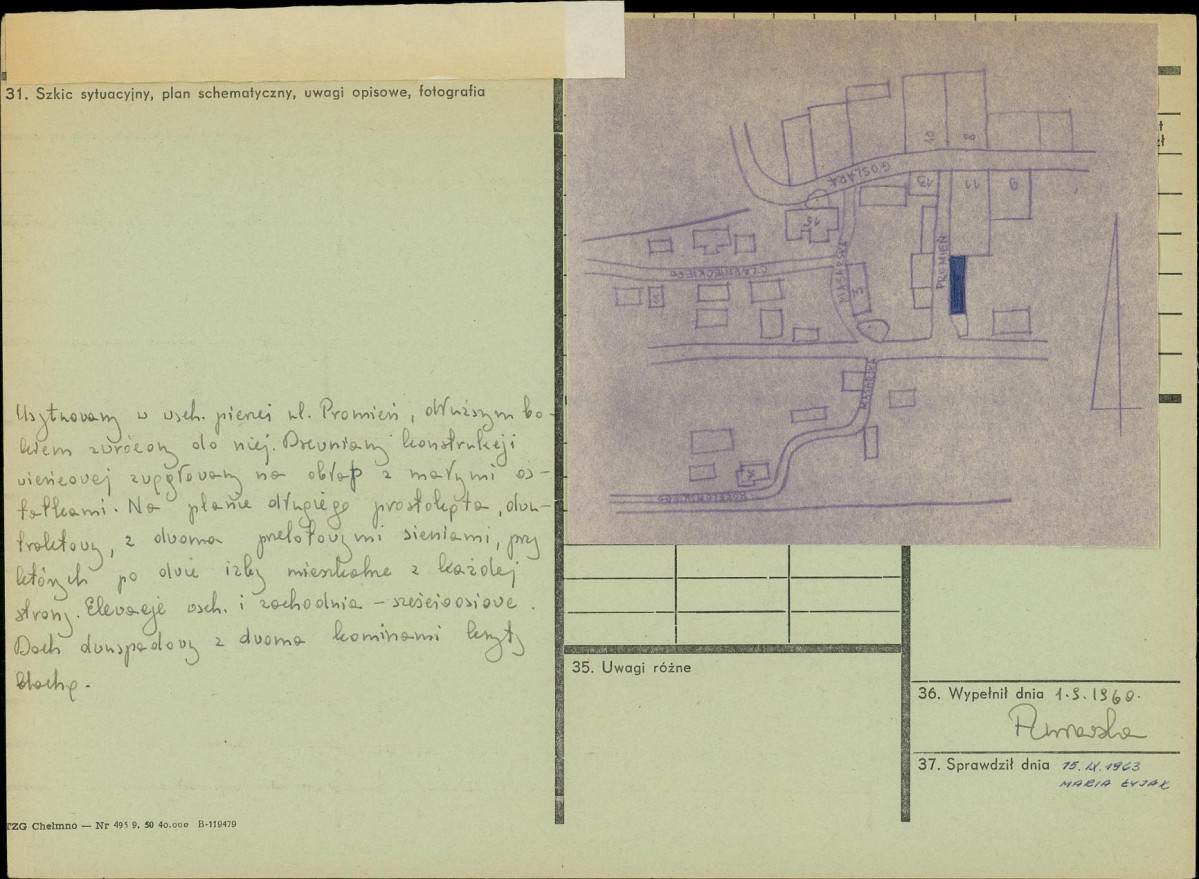 31. Szkic sytuacyjny, plan schematyczny, uwagi opisowe, fotografia
Usytuowany w wsch. pierzei ul. Promień, dłuższym bo-
kiem zwrócony do niej. Drewniany konstrukcji
wieńcowej zwęgłowany na obłap z małymi os-
tatkami. Na planie długiego prostokąta, dwu-
traktowy, z dwoma przelotowymi sieniami, przy
których po dwie izby mieszkalne z każdej
strony. Elewacje wsch. i zachodnia - sześcioosiowe.
Dach dwuspadowy z dwoma kominami kryty
blachą.
TZG Chełmno — Nr 495 9. 50 40.000 B-119479
GOSLARA
10
8
13
11
9
15
CZARNIECKIEGO
11
MASARSKA
3
PROMIEŃ
MASARSKA
35. Uwagi różne
36. Wypełnił dnia 1.9.1960.
37. Sprawdził dnia 15.IX.1963
MARIA